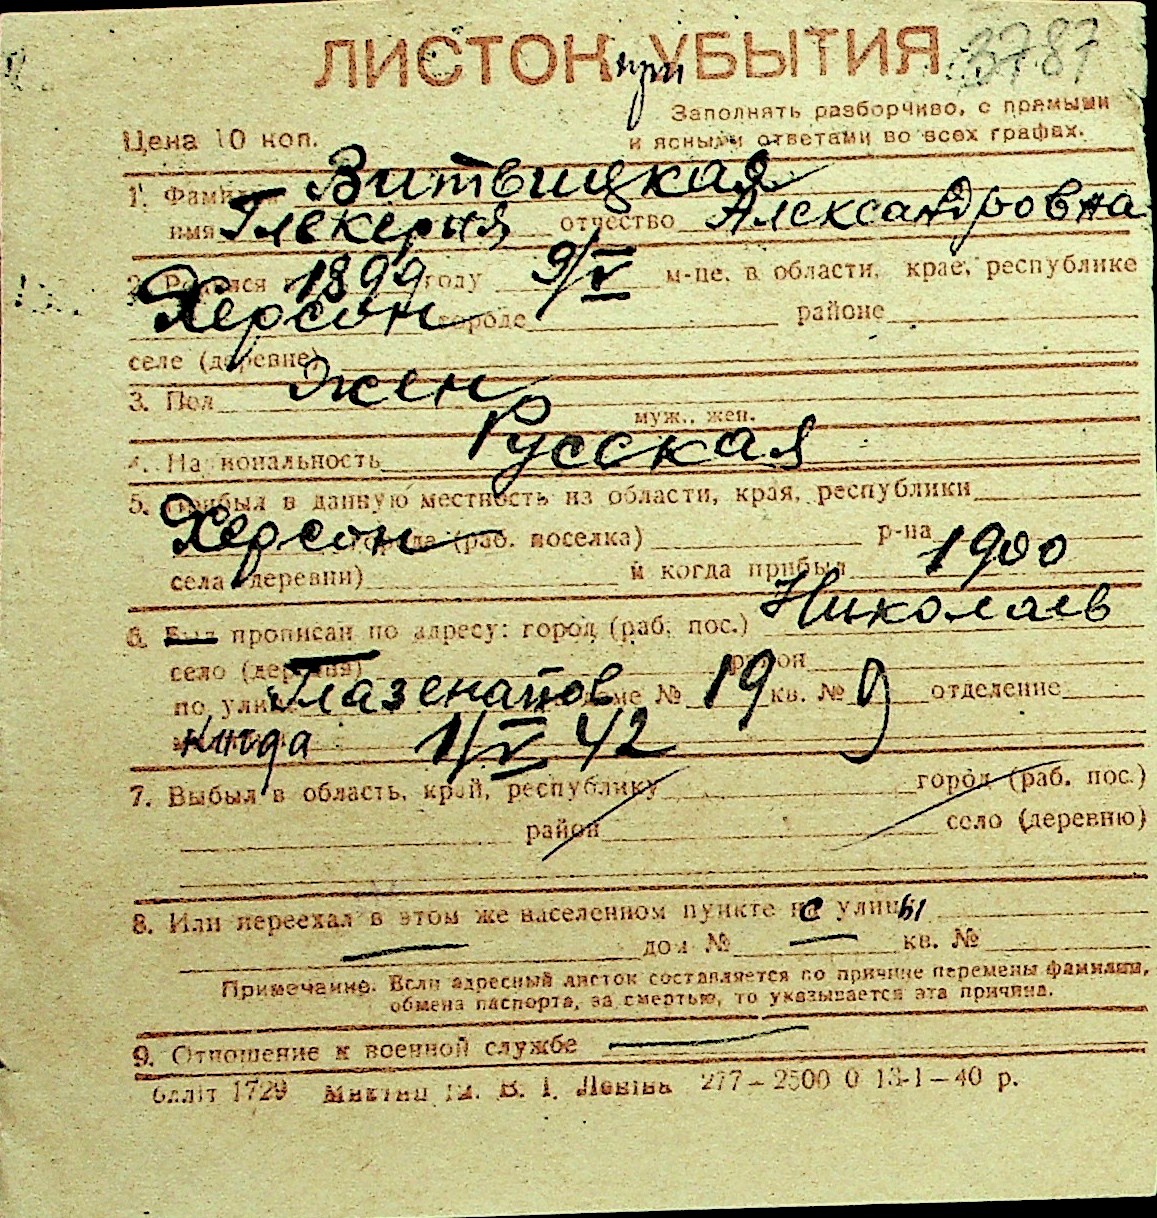 ЛИСТОК при УБЫТИЯ 3787
Заполнять разборчиво, с прямыми
Цена 10 коп. и ясными ответами во всех графах.
1. Фамилия Витвицкая
имя Глекерия отчество Александровна
2. Родился в 1899 году 9/V м-це, в области, крае, республике
Херсон городе районе
селе (деревне)
3. Пол жен
муж., жен.
4. Национальность Русская
5. Прибыл в данную местность из области, края, республики
Херсон города (раб. поселка) р-на
села (деревни) и когда прибыл 1900
6. Был прописан по адресу: город (раб. пос.) Николаев
село (деревня) район
по улице Глазенапов доме № 19 кв. № 9 отделение
когда 1/V 42
7. Выбыл в область, край, республику город (раб. пос.)
район село (деревню)
8. Или переехал в этом же населенном пункте с улицы
дом № кв. №
Примечание. Если адресный листок составляется по причине перемены фамилии,
обмена паспорта, за смертью, то указывается эта причина.
9. Отношение к военной службе
блліт 1729 В. І. Леніна 277—2500 0 13-1—40 р.